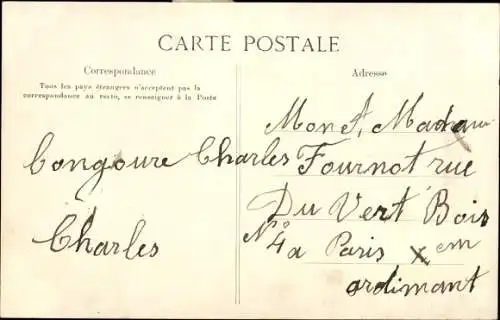 CARTE POSTALE
Correspondance
Tous les pays étrangers n'acceptent pas la
correspondance au recto, se renseigner à la Poste
Congoure Charles
Charles
Adresse
Mon et, Madam
Fournot rue
Du Vert Bois
N° 4 a Paris X em
ardimant